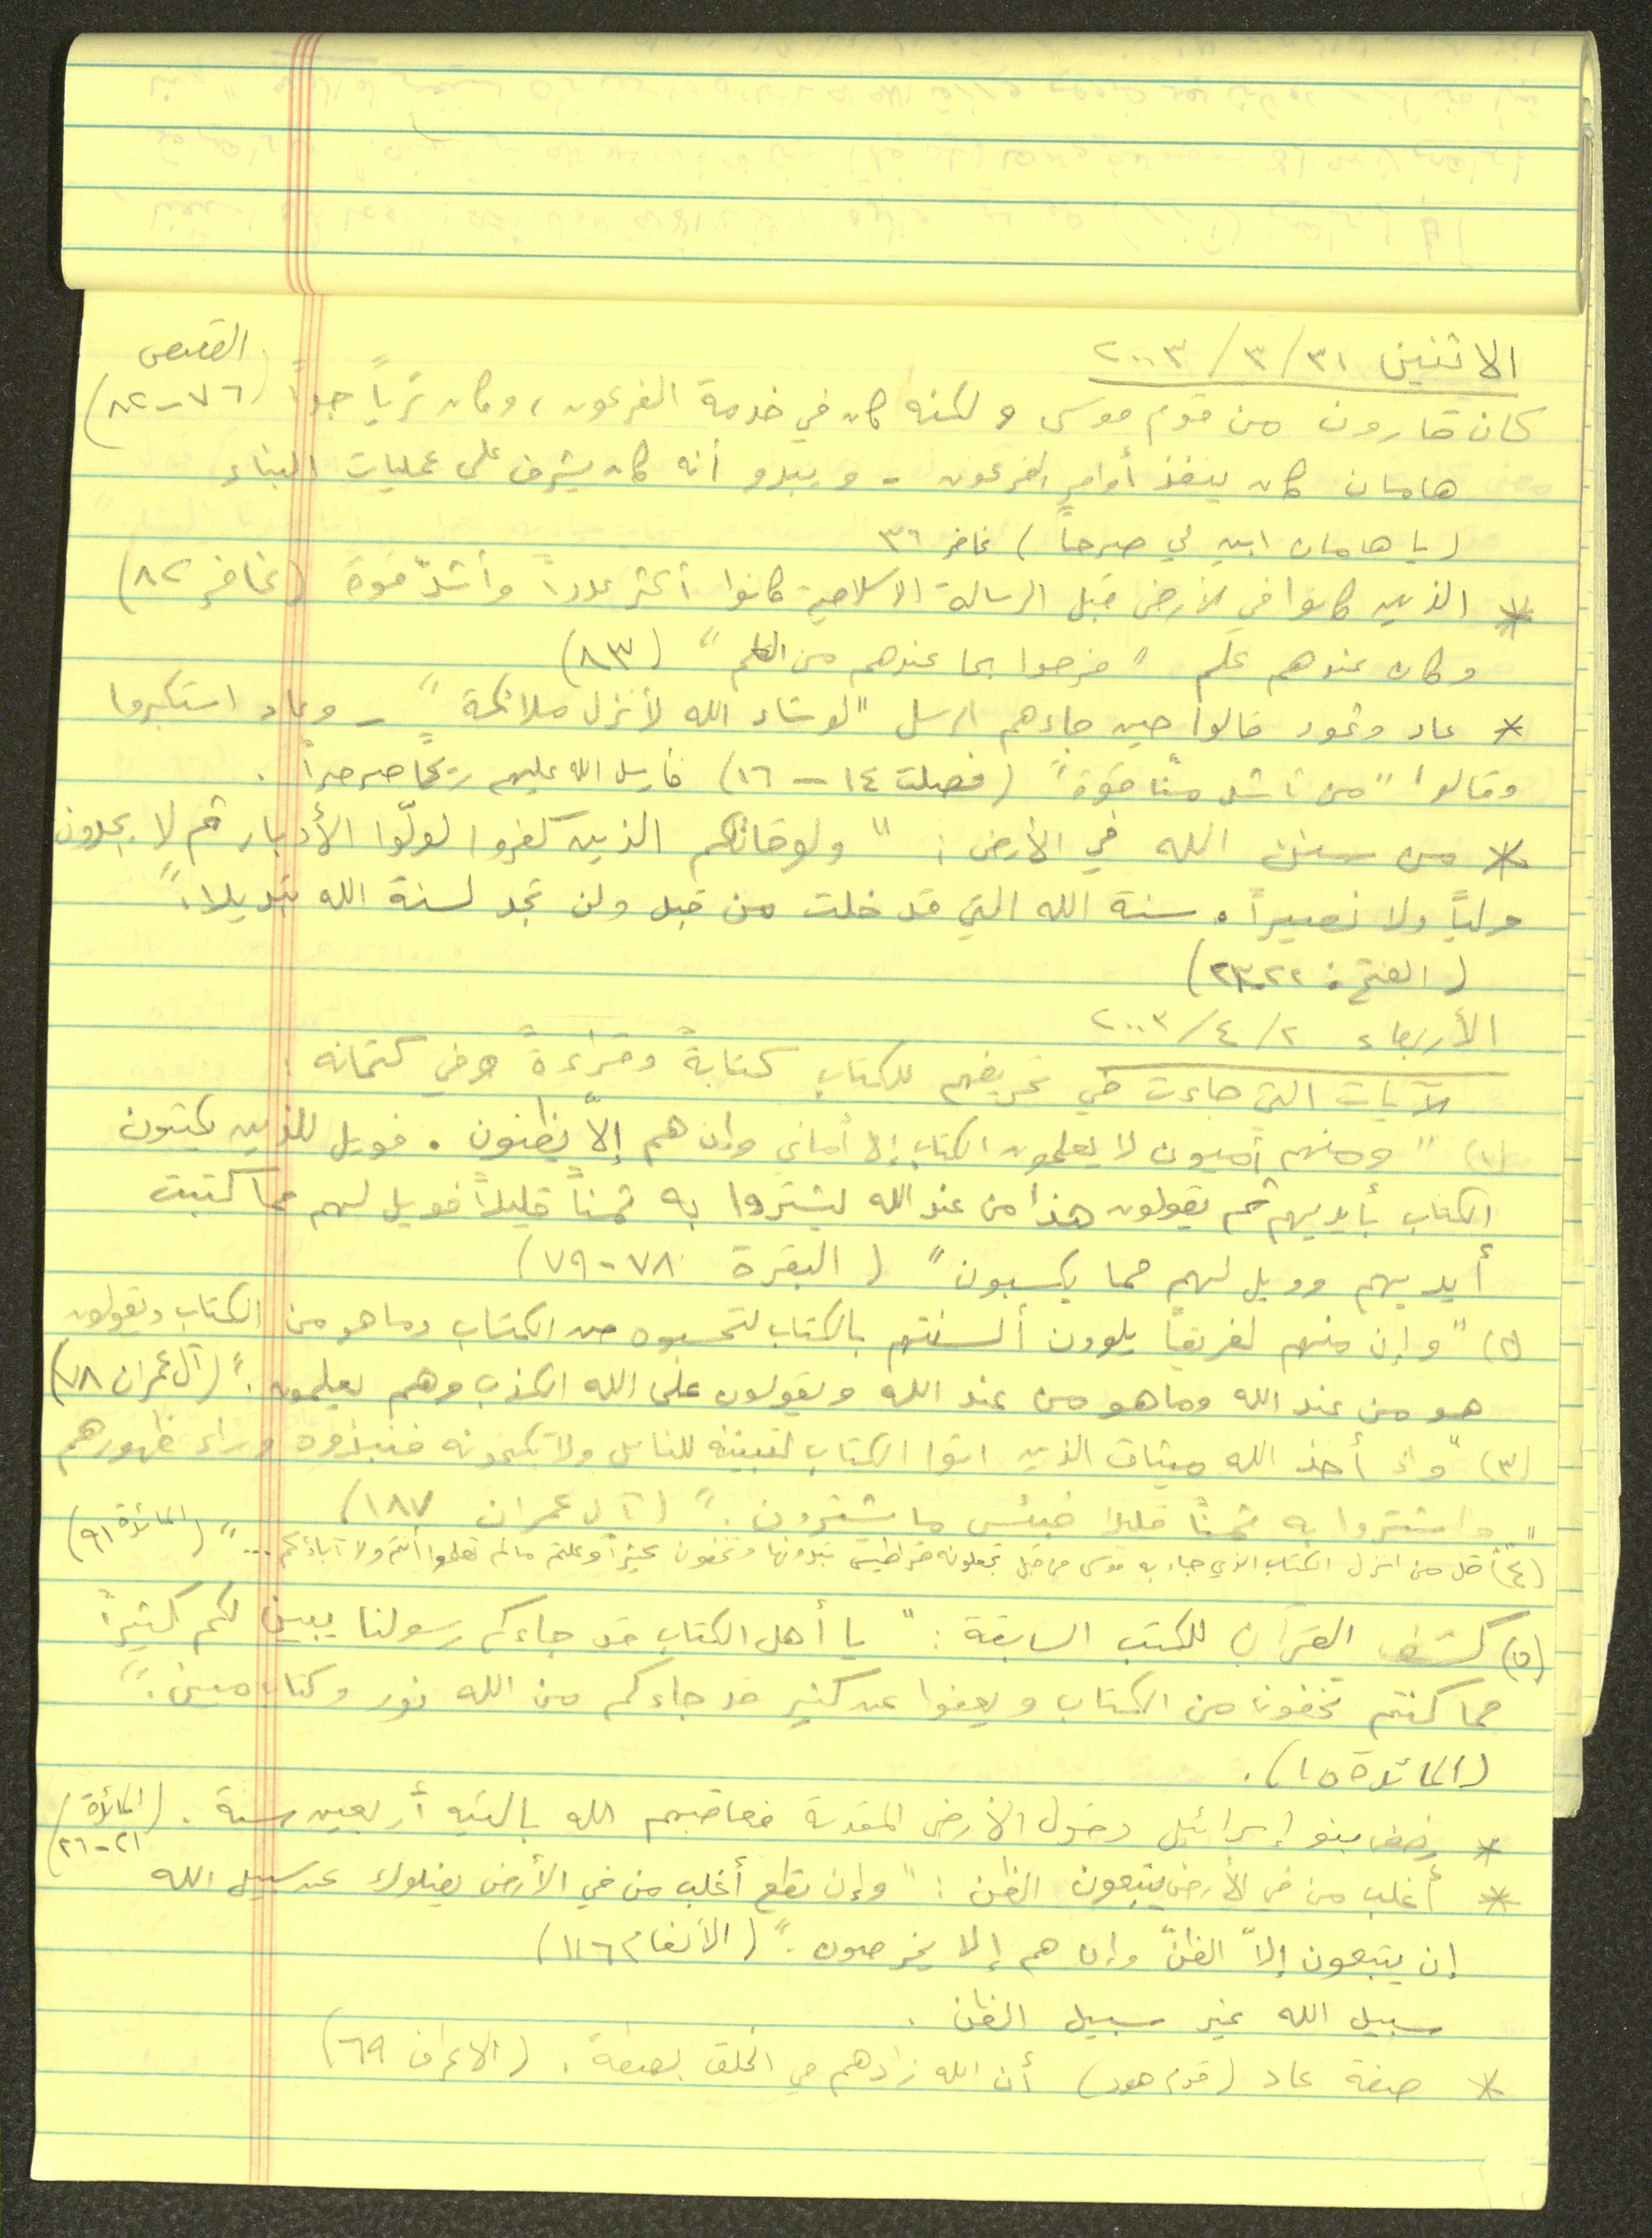 الاثنين ٣١/٣/٢٠٠٣
كان قارون من قوم موسى ولكنه كان في خدمة الفرعون، وكان ثرياً جداً (القصص ٧٦-٨٢)
هامان كان ينفذ أوامر الفرعون - ويبدو أنه كان يشرف على عمليات البناء
(يا هامان ابن لي صرحاً) غافر ٣٦
* الذين كانوا في الأرض قبل الرسالة الاسلامية كانوا أكثر عدداً وأشدّ قوة (غافر ٨٢)
وكان عندهم علم "فرحوا بما عندهم من العلم" (٨٣)
* عاد وثمود قالوا حين جاءهم الرسل "لو شاء الله لأنزل ملائكة" - وعاد استكبروا
وقالوا "من أشد منّا قوة" (فصلت ١٤-١٦) فأرسل الله عليهم ريحاً صرصراً.
* من سنن الله في الأرض: "ولو قاتلكم الذين كفروا لولّوا الأدبار ثم لا يجدون
ولياً ولا نصيراً. سنة الله التي قد خلت من قبل ولن تجد لسنة الله تبديلا."
(الفتح: ٢٢-٢٣)
الأربعاء ٢/٤/٢٠٠٣
الآيات التي جاءت في تحريفهم للكتاب كتابةً وقراءةً وفي كتمانه:
(١) "ومنهم أميون لا يعلمون الكتاب إلا أماني وإن هم إلاّ يظنون. فويل للذين يكتبون
الكتاب بأيديهم ثم يقولون هذا من عند الله ليشتروا به ثمناً قليلاً فويل لهم مما كتبت
أيديهم وويل لهم مما يكسبون" (البقرة ٧٨-٧٩)
(٢) "وإن منهم لفريقاً يلوون ألسنتهم بالكتاب لتحسبوه من الكتاب وما هو من الكتاب ويقولون
هو من عند الله وما هو من عند الله ويقولون على الله الكذب وهم يعلمون." (آل عمران ٧٨)
(٣) "وإذ أخذ الله ميثاق الذين اتوا الكتاب لتبيننه للناس ولا تكتمونه فنبذوه وراء ظهورهم
واشتروا به ثمناً قليلا فبئس ما يشترون." (آل عمران ١٨٧)
(٤) "قل من انزل الكتاب الذي جاء به موسى من قبل تجعلونه قراطيس تبدونها وتخفون كثيراً وعلمتم مالم تعلموا أنتم ولا آباؤكم..." (المائدة ٩١)
(٥) كشف القرآن للكتب السابقة: "يا أهل الكتاب قد جاءكم رسولنا يبين لكم كثيراً
مما كنتم تخفون من الكتاب ويعفوا عن كثير قد جاءكم من الله نور وكتاب مبين."
(المائدة ١٥).
* رفض بنو إسرائيل دخول الأرض المقدسة فعاقبهم الله بالتيه أربعين سنة. (المائدة ٢١-٢٦)
* أغلب من في الأرض يتبعون الظن: "وإن تطع أغلب من في الأرض يضلوك عن سبيل الله
إن يتبعون إلاّ الظنّ وإن هم إلا يخرصون." (الأنعام ١١٦)
سبيل الله غير سبيل الظن.
* صفة عاد (قوم هود) أن الله زادهم في الخلق بصطة. (الاعراف ٦٩)